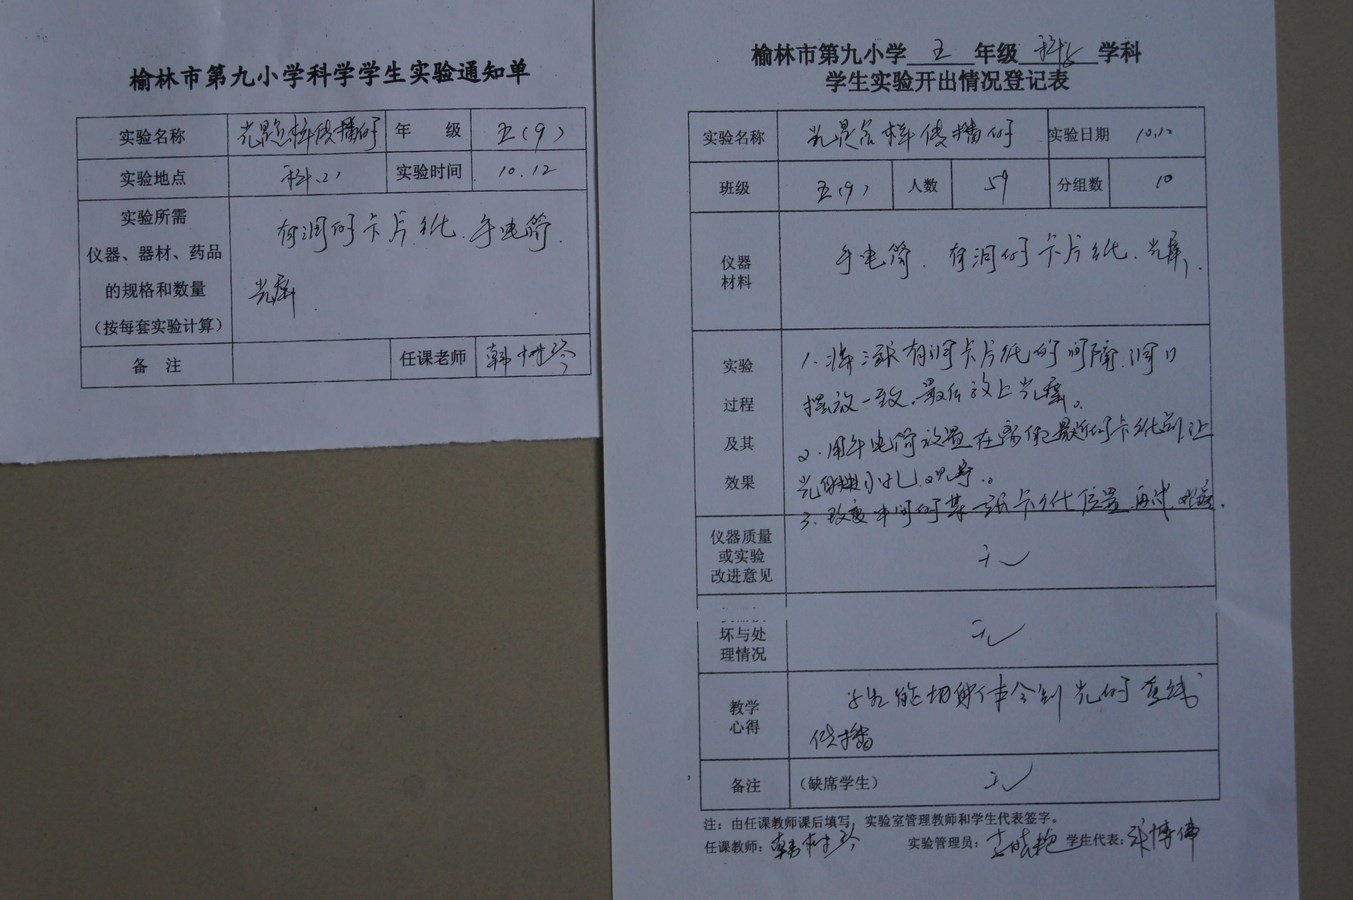 榆林市第九小学科学学生实验通知单
实验名称 光是怎样传播的 年 级 五(9)
实验地点 科(2) 实验时间 10.12
实验所需
仪器、器材、药品
的规格和数量
(按每套实验计算)
有洞的卡片纸、手电筒、
光屏.
备 注 任课老师 韩树琴
榆林市第九小学 五 年级 科学 学科
学生实验开出情况登记表
实验名称 光是怎样传播的 实验日期 10.12
班级 五(9) 人数 59 分组数 10
仪器
材料
手电筒、有洞的卡片纸、光屏、
实验
过程
及其
效果
1、将 有洞卡片纸的间隔、洞口
摆放一致,最后放上光屏。
2、用手电筒放置在离 最近的卡纸前,让
光 小孔,观察。
3、改变中间的某一张卡纸位置,再 观察.
仪器质量
或实验
改进意见
无
坏与处
理情况
无
教学
心得
学生能切身体会到光的直线
传播
备注 (缺席学生) 无
注:由任课教师课后填写,实验室管理教师和学生代表签字。
任课教师:韩树琴 实验管理员: 学生代表:张博伟